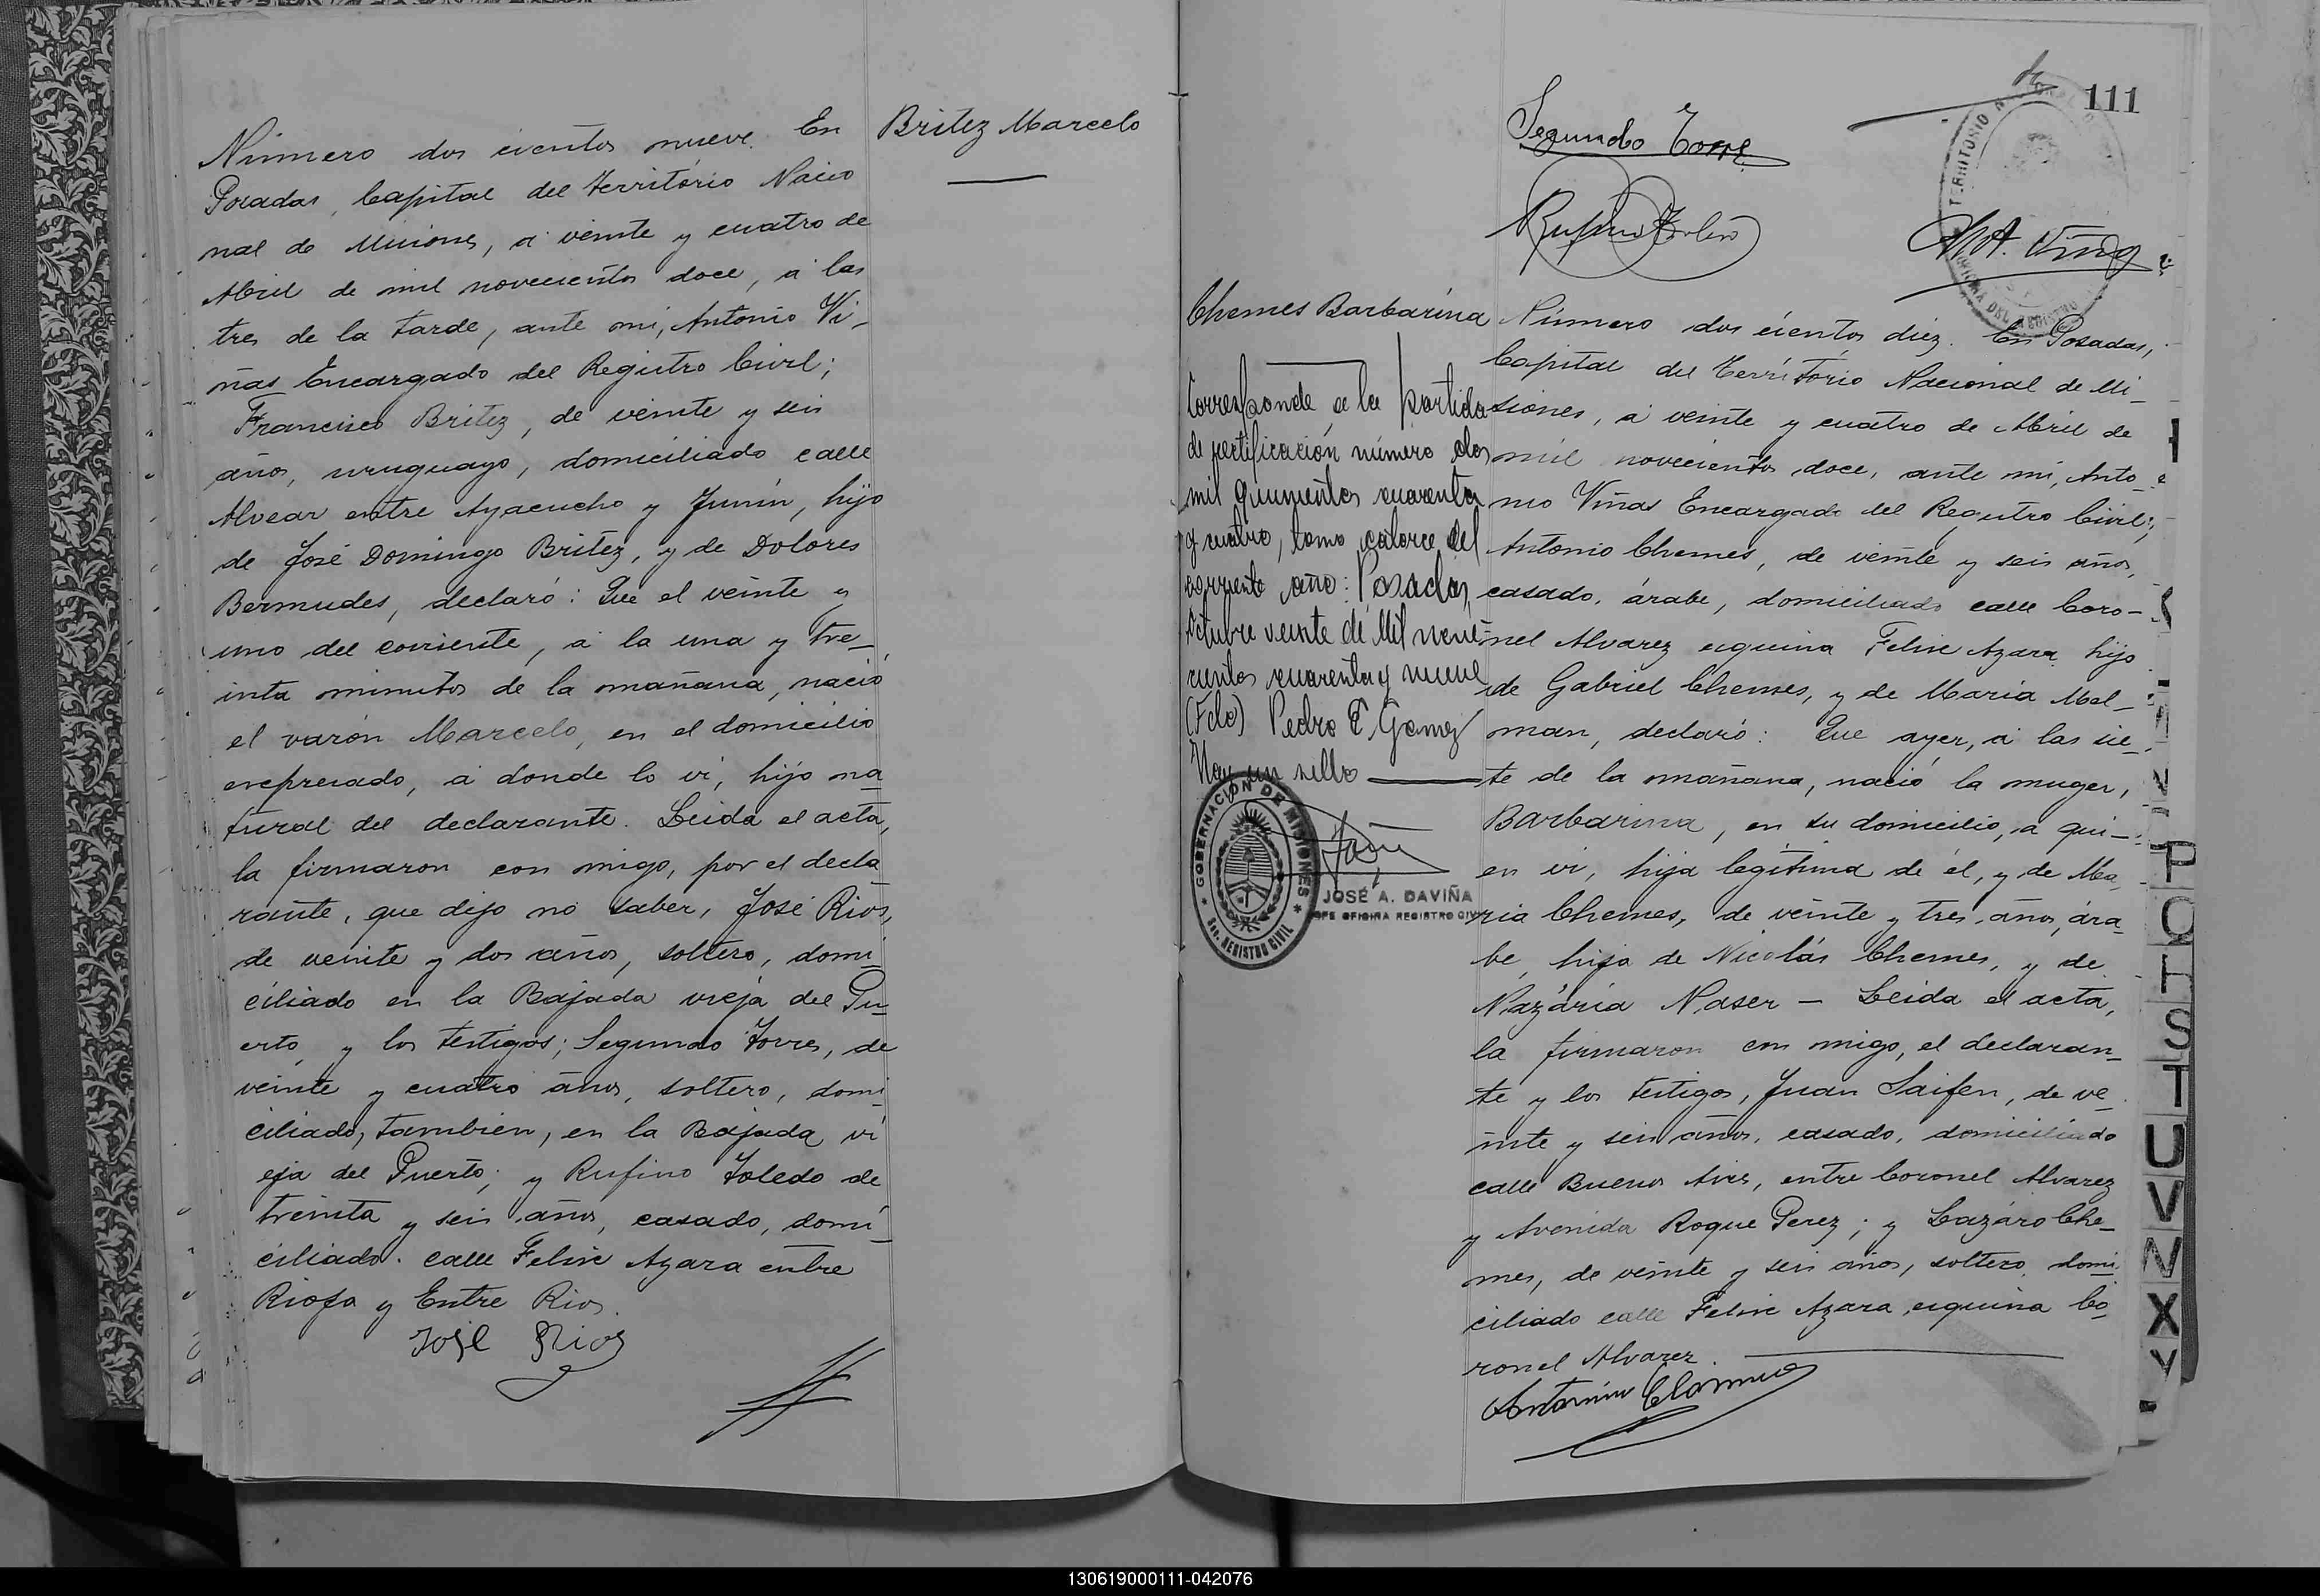 Número dos cientos nueve. En
Posadas, Capital del Território Nacio
nal de Misiones, a veinte y cuatro de
Abril de mil novecientos doce, a las
tres de la tarde, ante mi, Antonio Vi-
ñas Encargado del Registro Civil;
Francisco Britez, de veinte y seis
años, uruguayo, domiciliado calle
Alvear entre Ayacucho y Junín, hijo
de José Domingo Britez, y de Dolores
Bermudes, declaró: Que el veinte y
uno del corriente, a la una y tre-
inta minutos de la mañana, nació
el varón Marcelo, en el domicilio
expresado, a donde lo vi, hijo na
tural del declarante. Leida el acta,
la firmaron con migo, por el decla
rante, que dijo no saber, José Rios,
de veinte y dos años, soltero, domi-
ciliado en la Bajada vieja del Pu-
erto, y los testigos; Segundo Torres, de
veinte y cuatro años, soltero, domi
ciliado, tambien, en la Bajada vi
eja del Puerto; y Rufino Toledo de
treinta y seis años, casado, domi-
ciliado calle Felix Azara entre
Rioja y Entre Rios.
José Rios
Britez Marcelo
111
Segundo Torre
Rufino Toledo
A. Viñas
TERRITORIO
OFICINA DEL REGISTRO
Chemes Barbarina
Corresponde a la partida
de rectificación número dos
mil quinientos cuarenta
y cuatro, tomo catorce del
corriente año: Posadas,
Octubre veinte de Mil nove-
cientos cuarenta y nueve
(Fdo) Pedro E Gomez
Hay un sello
GOBERNACIÓN DE MISIONES
SEC. REGISTRO CIVIL
JOSÉ A. DAVIÑA
JEFE OFICINA REGISTRO CIVIL
Número dos cientos diez. En Posadas,
Capital del Território Nacional de Mi-
siones, a veinte y cuatro de Abril de
mil novecientos doce, ante mi, Anto-
nio Viñas Encargado del Registro Civil;
Antonio Chemes, de veinte y seis años,
casado, árabe, domiciliado calle Coro-
nel Alvarez esquina Felix Azara, hijo
de Gabriel Chemes, y de Maria Mel-
man, declaró: Que ayer, a las sie-
te de la mañana, nació la muger,
Barbarina, en su domicilio, a qui-
en vi, hija legítima de él, y de Ma
ria Chemes, de veinte y tres años, ára
be, hija de Nicolás Chemes, y de
Nazária Naser - Leida el acta,
la firmaron con migo, el declaran-
te y los testigos, Juan Saifen, de ve-
inte y seis años, casado, domiciliado
calle Buenos Aires, entre Coronel Alvarez
y Avenida Roque Perez; y Lazáro Che-
mes, de veinte y seis años, soltero, domi
ciliado calle Felix Azara, esquina Co-
ronel Alvarez.
Antonio
P
Q
H
S
T
U
V
N
X
Y
130619000111-042076